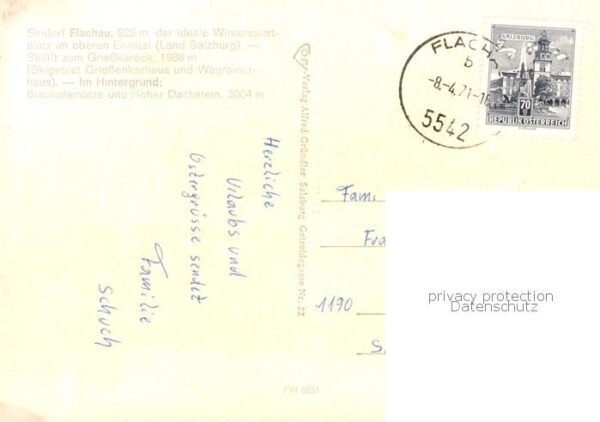 Skidorf Flachau, 925 m, der ideale Wintersport-
platz im oberen Ennstal (Land Salzburg). —
Skilift zum Grießkareck, 1988 m
(Skigebiet Grießenkarhaus und Wagrainer-
haus). — Im Hintergrund:
Bischofsmütze und Hoher Dachstein, 3004 m
Herzliche
Urlaubs und
Ostergrüsse sendet
Familie
Schuch
Cosy-Verlag Alfred Gründler Salzburg Getreidegasse Nr. 22
FLACH
b
-8.-4.71-16
5542
SALZBURG
70
REPUBLIK ÖSTERREICH
Fami
Fra
1190
privacy protection
Datenschutz